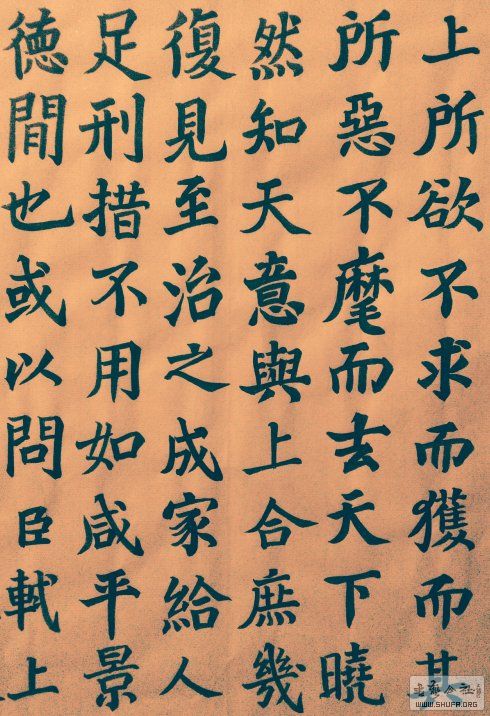 上所欲不求而獲而其
所惡不麾而去天下曉
然知天意與上合庶幾
復見至治之成家給人
足刑措不用如咸平景
德間也或以問臣軾上
WWW.SHUFA.ORG